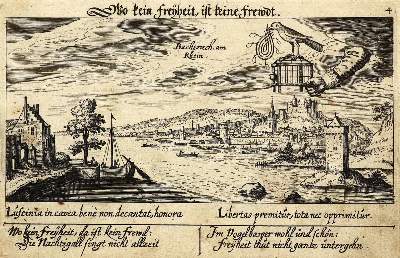 Wo kein freÿheit, ist keine frewdt.
4
Bacherach am
Rhein.
Luscinia in cavea benè non decantat, honora
Libertas premitur, tota nec opprimitur.
Wo kein freÿheit, da ist kein frewd:
Die Nachtigall singt nicht allzeit
Im Vogelbawer wohl und schön:
Freÿheit thut nicht gantz untergehn.